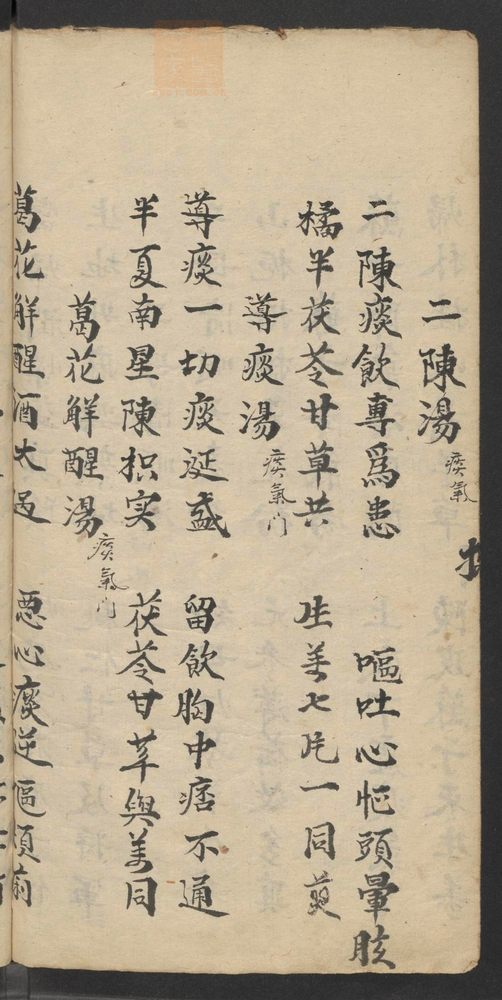 二陳湯 痰氣
二陳痰飲專爲患 嘔吐心忪頭暈胘
橘半茯苓甘草共 生姜七片一同煎
導痰湯 痰氣门
導痰一切痰涎盛 留飲胸中痞不通
半夏南星陳枳实 茯苓甘草與姜同
葛花解醒湯 痰氣门
葛花解醒酒大過 惡心痰逆嘔頻